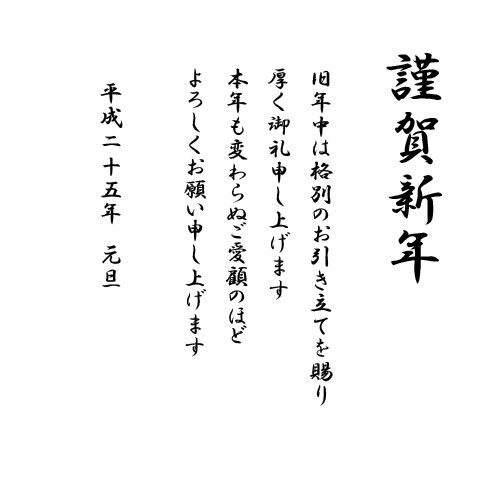 謹賀新年
旧年中は格別のお引き立てを賜り
厚く御礼申し上げます
本年も変わらぬご愛顧のほど
よろしくお願い申し上げます
平成二十五年 元旦